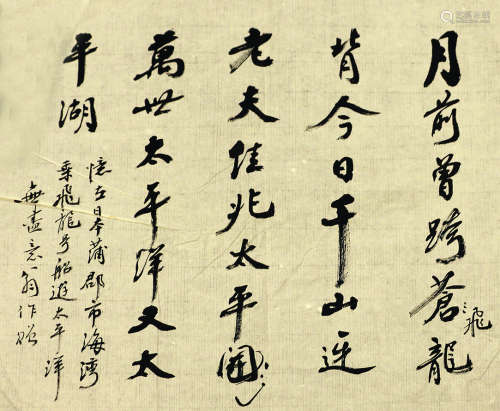 月前曾跨蒼龍
飛
背今日千山迎
老夫佳兆太平國
萬世太平洋又太
平湖
憶在日本蒲郡市海灣
乗飛龍号船遊太平洋
無盡意翁作